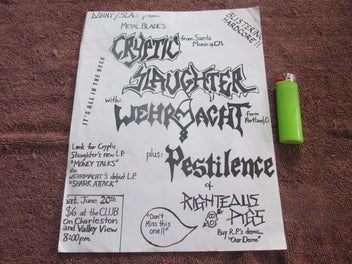 DANNY/SLAG presents
METAL BLADE'S
BLISTERING
HARDCORE!!
CRYPTIC
from Santa
Monica, CA
SLAUGHTER
IT'S ALL IN THE DECK
with:
WEHRMACHT
from
Portland, O
Look for Cryptic
Slaughter's new L.P.
"MONEY TALKS"
WEHRMACHT'S debut L.P.
"SHARK ATTACK"
plus:
Pestilence
&
RIGHTEOUS
PIGS
Buy R.P.'s demo...
"Our Demo"
Sat. June 20th
$6 at the CLUB
On Charleston
and Valley View
8:00 pm
"Don't
Miss this
one!!"